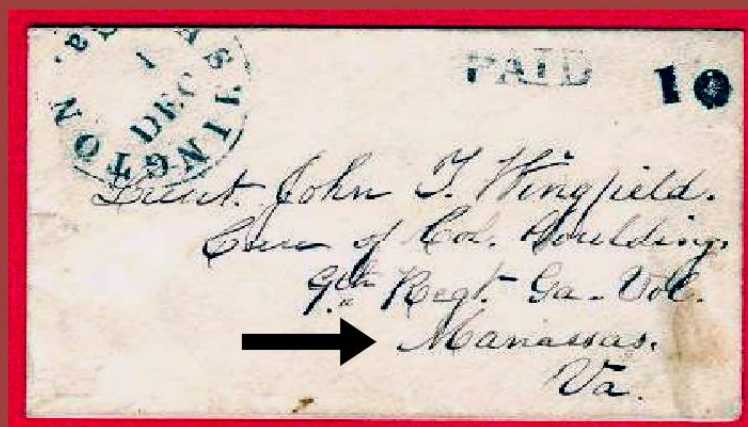 WASHINGTON Ga.
1
DEC
PAID 10
Lieut. John T. Wingfield.
Care of Col. Goulding.
9th Regt. Ga. Vol.
Manassas.
Va.